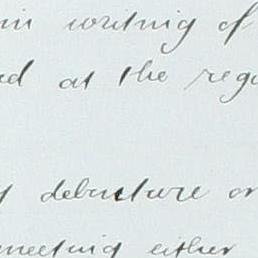 in writing of
at the
debenture or
meeting either